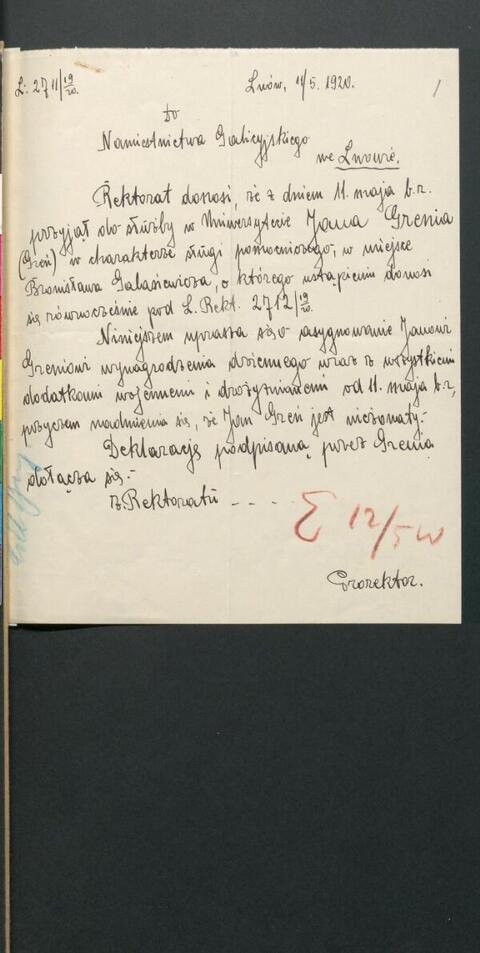 L: 2711/19/20. Lwów, 11/5. 1920. 1
Do
Namiestnictwa Galicyjskiego
we Lwowie.
Rektorat donosi, że z dniem 11. maja b.r.
przyjął do służby w Uniwersytecie Jana Grenia
(Greń) w charakterze sługi pomocniczego, w miejsce
Bronisława Galasiewicza, o którego ustąpieniu donosi
się równocześnie pod L. Rekt. 2712/19/20.
Niniejszem uprasza się o asygnowanie Janowi
Greniowi wynagrodzenia dziennego wraz z wszystkiemi
dodatkami wojennemi i drożyźnianemi od 11. maja b.r.,
przyczem nadmienia się, że Jan Greń jest nieżonaty.-
Deklarację podpisaną przez Grenia
dołącza się.-
z Rektoratu - - - -
E 12/5 W
Prorektor.